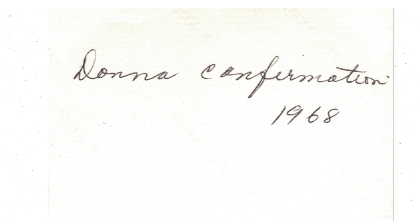 Donna confirmation
1968